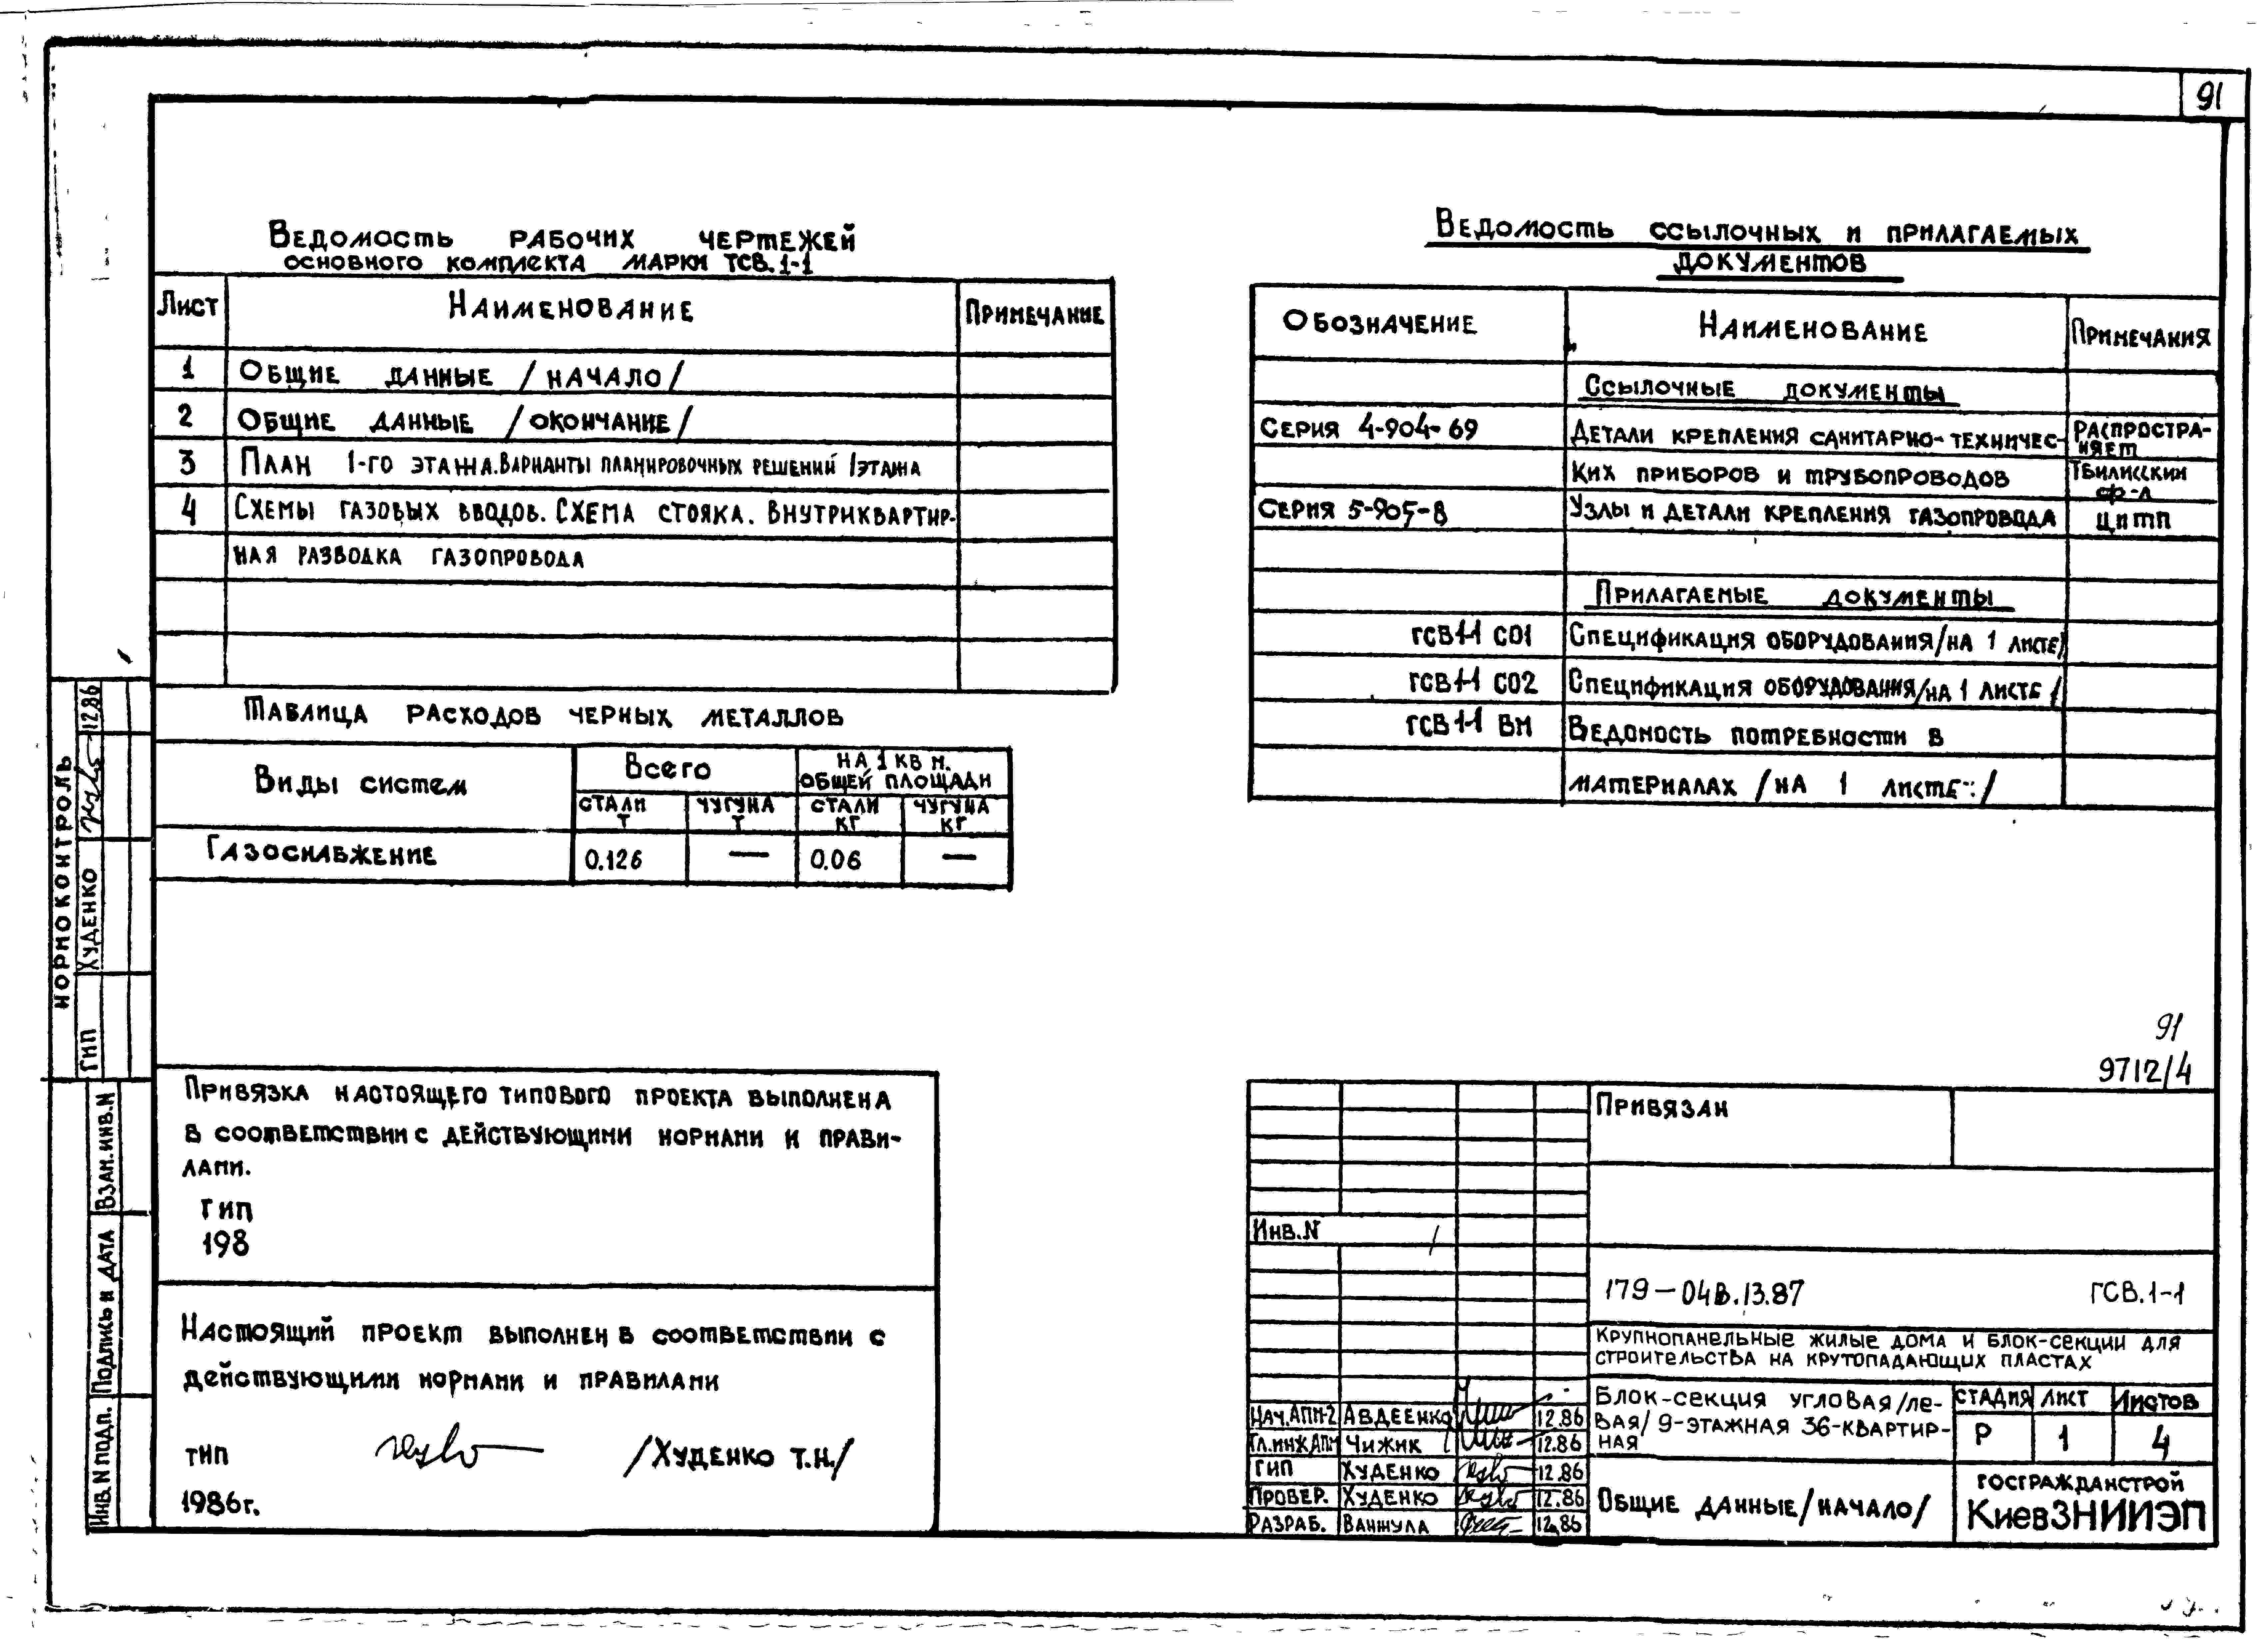 91
Ведомость рабочих чертежей
основного комплекта марки ГСВ.1-1
Лист Наименование Примечание
1 Общие данные /начало/
2 Общие данные /окончание/
3 План 1-го этажа. Варианты планировочных решений 1 этажа
4 Схемы газовых вводов. Схема стояка. Внутриквартир-
ная разводка газопровода
Таблица расходов черных металлов
Виды систем Всего на 1 кв м. общей площади
стали т чугуна т стали кг чугуна кг
Газоснабжение 0.126 — 0.06 —
Ведомость ссылочных и прилагаемых
документов
Обозначение Наименование Примечания
Ссылочные документы
Серия 4-904-69 Детали крепления санитарно-техничес- распростра-
няет
ких приборов и трубопроводов Тбилисский
ф-л
Серия 5-905-8 Узлы и детали крепления газопровода ЦИТП
Прилагаемые документы
ГСВ1-1 СО1 Спецификация оборудования /на 1 листе/
ГСВ1-1 СО2 Спецификация оборудования /на 1 листе/
ГСВ1-1 ВМ Ведомость потребности в
материалах /на 1 листе/
Нормоконтроль
ГИП Худенко 12.86
Взам.инв.N
Подпись и дата
Инв.N подл.
Привязка настоящего типового проекта выполнена
в соответствии с действующими нормами и прави-
лами.
ГИП
198
Настоящий проект выполнен в соответствии с
действующими нормами и правилами
ГИП /Худенко Т.Н./
1986г.
91
9712/4
Привязан
Инв.N
179-04В.13.87 ГСВ.1-1
Крупнопанельные жилые дома и блок-секции для
строительства на крутопадающих пластах
Блок-секция угловая /ле-
вая/ 9-этажная 36-квартир-
ная
Стадия Лист Листов
Р 1 4
Нач.АПМ-2 Авдеенко 12.86
Гл.инж.АПМ Чижик 12.86
ГИП Худенко 12.86
Провер. Худенко 12.86
Разраб. Ванжула 12.86
Общие данные /начало/
Госгражданстрой
КиевЗНИИЭП